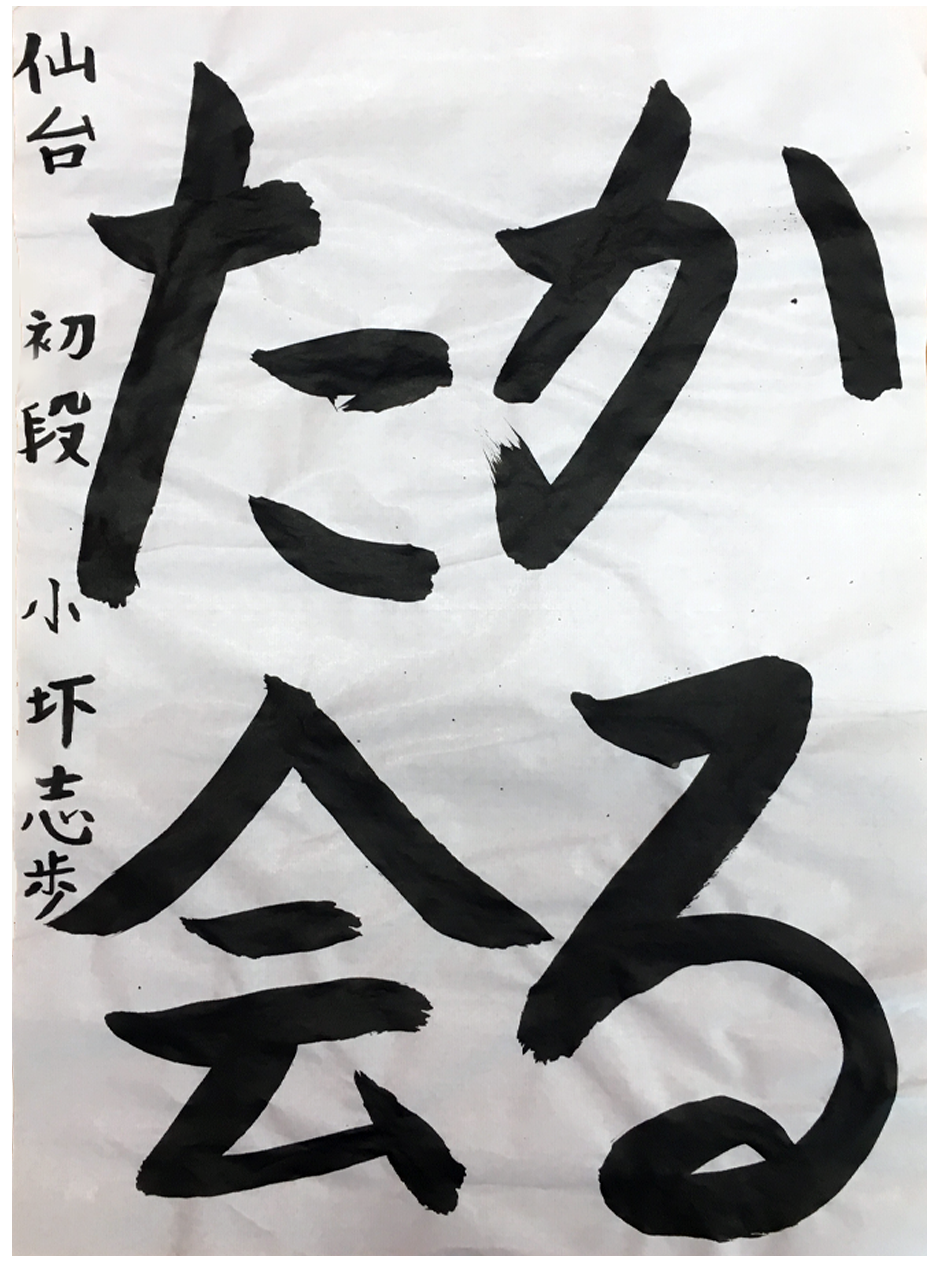 かる
た会
仙台 初段 小 坏志歩